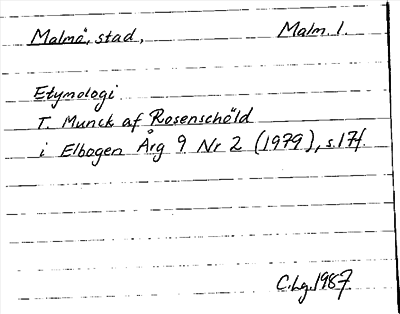 Malmö, stad, Malm. l.
Etymologi
T. Munck af Rosenschöld
i Elbogen Årg 9 Nr 2 (1979), s. 17f.
C.Lg. 1987